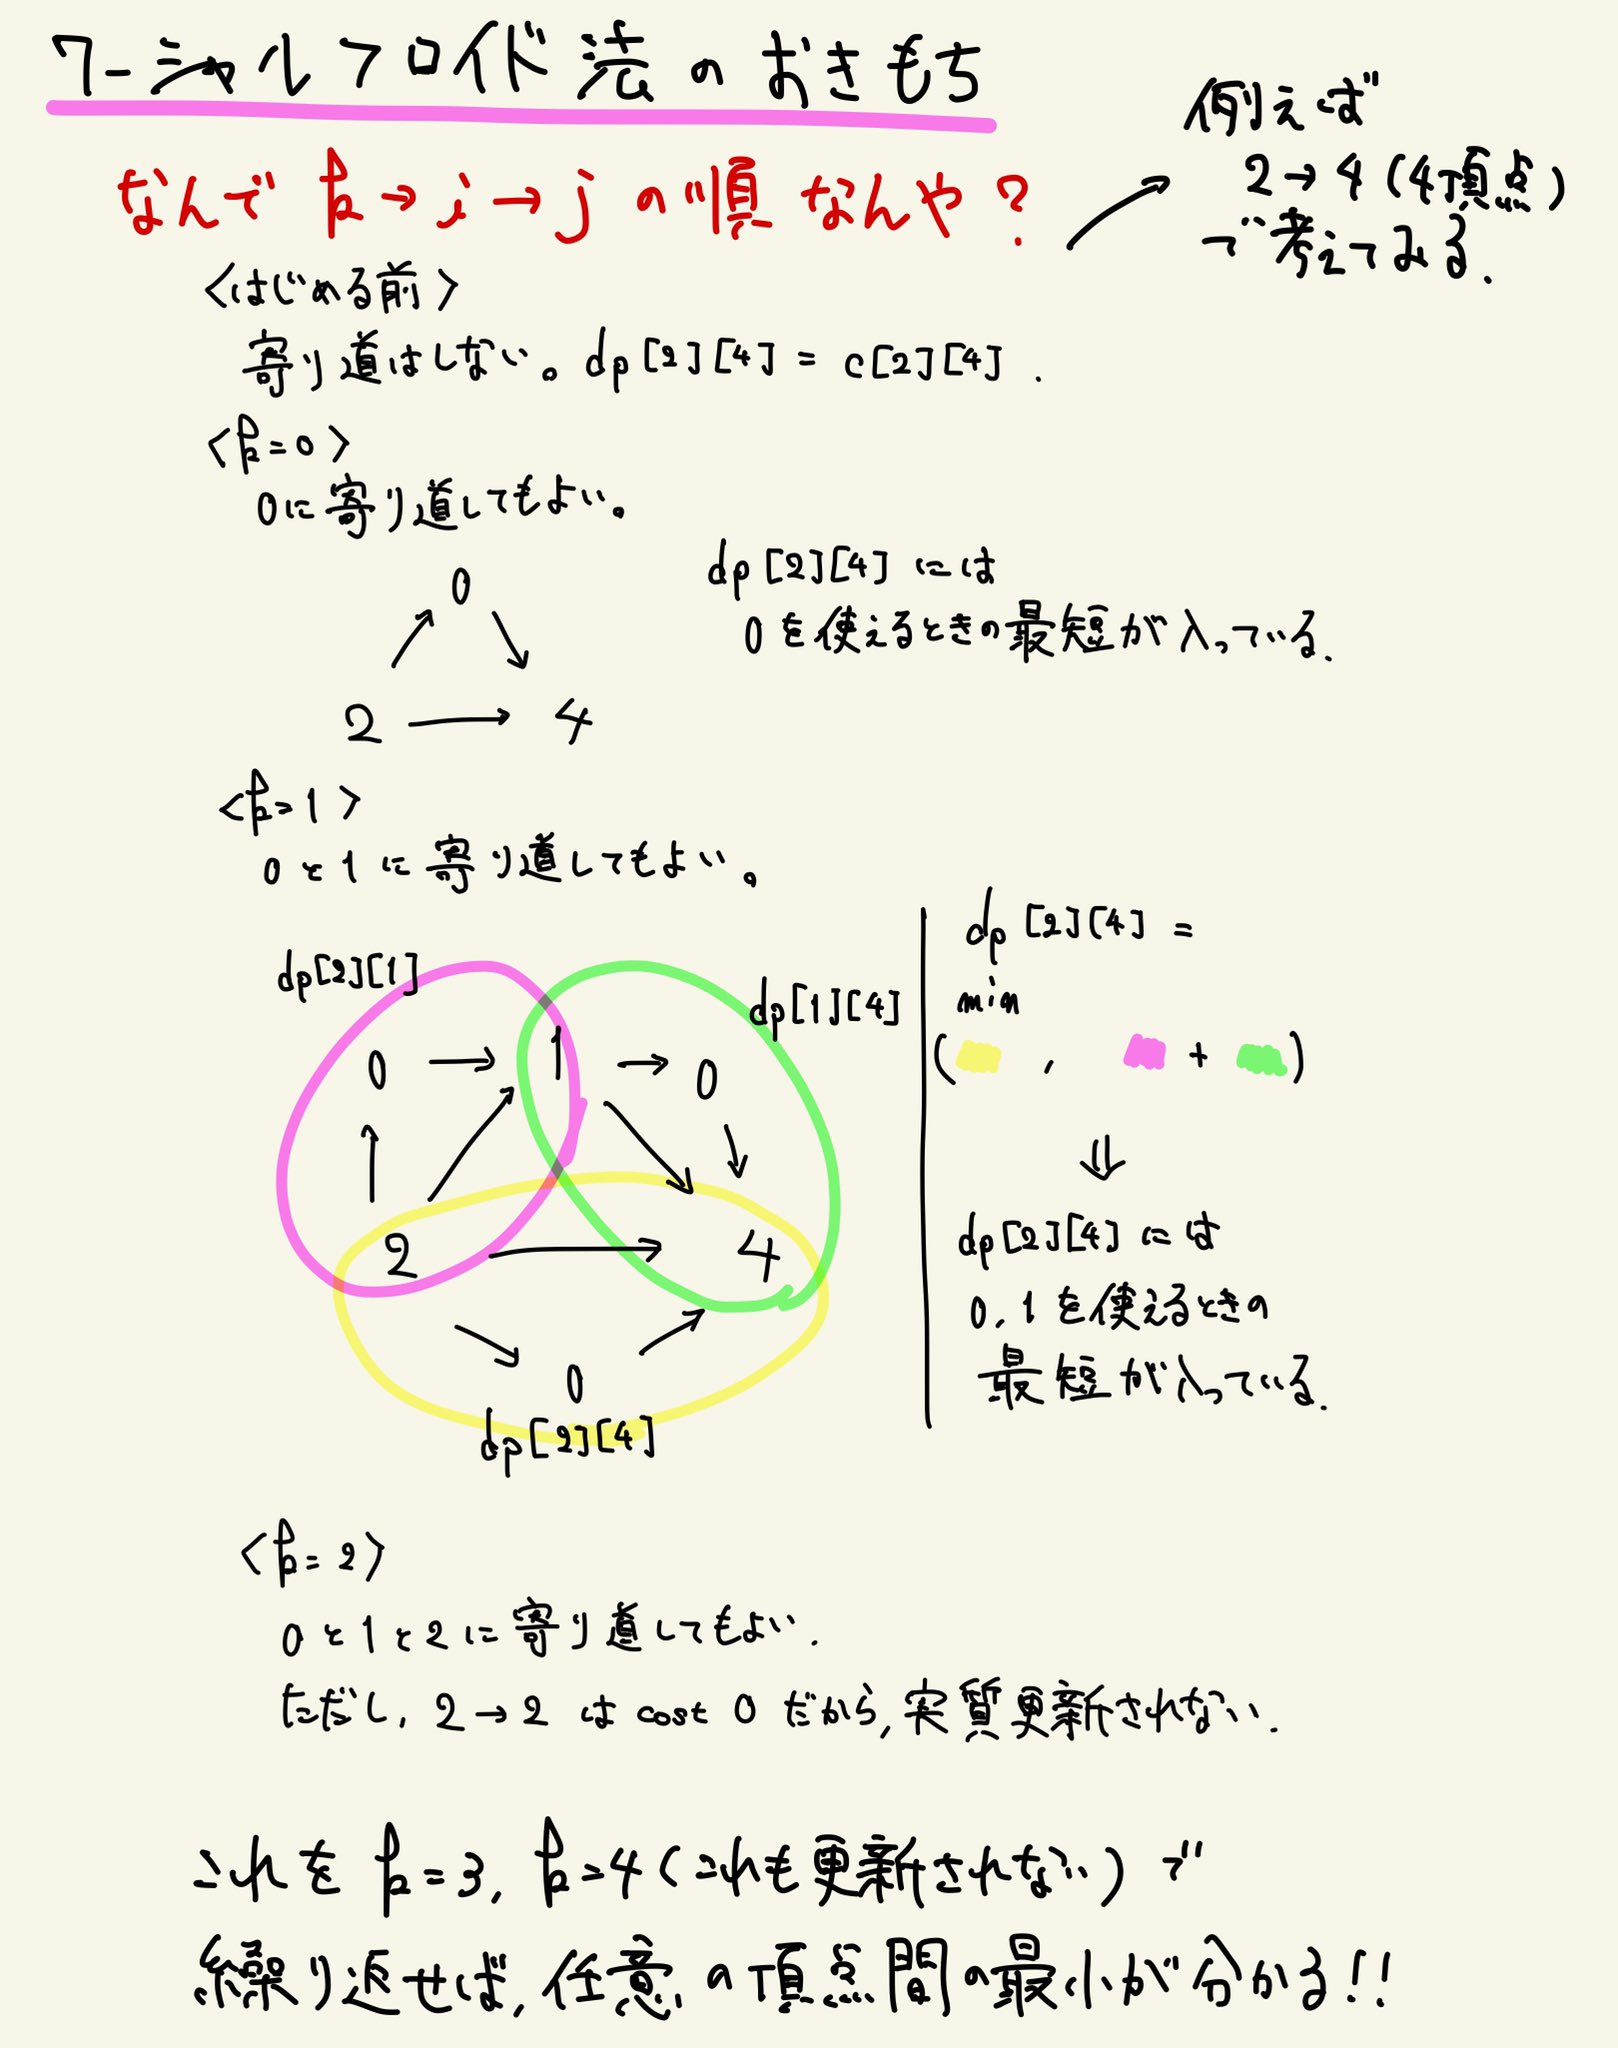 ワーシャルフロイド法のおきもち
なんで k→i→j の順なんや?
例えば
2→4(4頂点)
で考えてみる.
<はじめる前>
寄り道はしない。dp[2][4] = c[2][4].
<k=0>
0に寄り道してもよい。
0
2 → 4
dp[2][4]には
0を使えるときの最短が入っている.
<k=1>
0と1に寄り道してもよい。
dp[2][1]
dp[1][4]
0 → 1 → 0
2 → 4
0
dp[2][4]
dp[2][4] =
min
( , + )
⇓
dp[2][4]には
0,1を使えるときの
最短が入っている.
<k=2>
0と1と2に寄り道してもよい.
ただし, 2→2 は cost 0 だから, 実質更新されない.
これを k=3, k=4(これも更新されない)で
繰り返せば, 任意の頂点間の最小が分かる!!